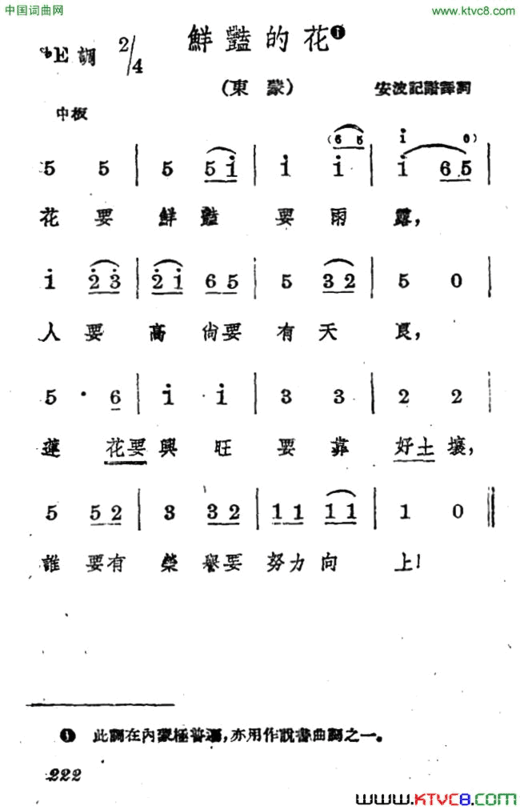 中国词曲网
www.ktvc8.com
鮮豔的花❶
♭E調 2/4
(東蒙)
安波記譜譯詞
中板
(6 5 i 6)
5 5 | 5 5 i | i i | i 6 5 |
花要鮮豔要雨露,
i 2 3 | 2 i 6 5 | 5 3 2 | 5 0 |
人要高尚要有天良,
5 · 6 | i i | 3 3 | 2 2 |
蓮花要興旺要靠好土壤,
5 5 2 | 3 3 2 | 1 1 1 1 | 1 0 ‖
誰要有榮譽要努力向上!
❶ 此調在內蒙極普遍,亦用作說書曲調之一。
222
www.KTVC8.com